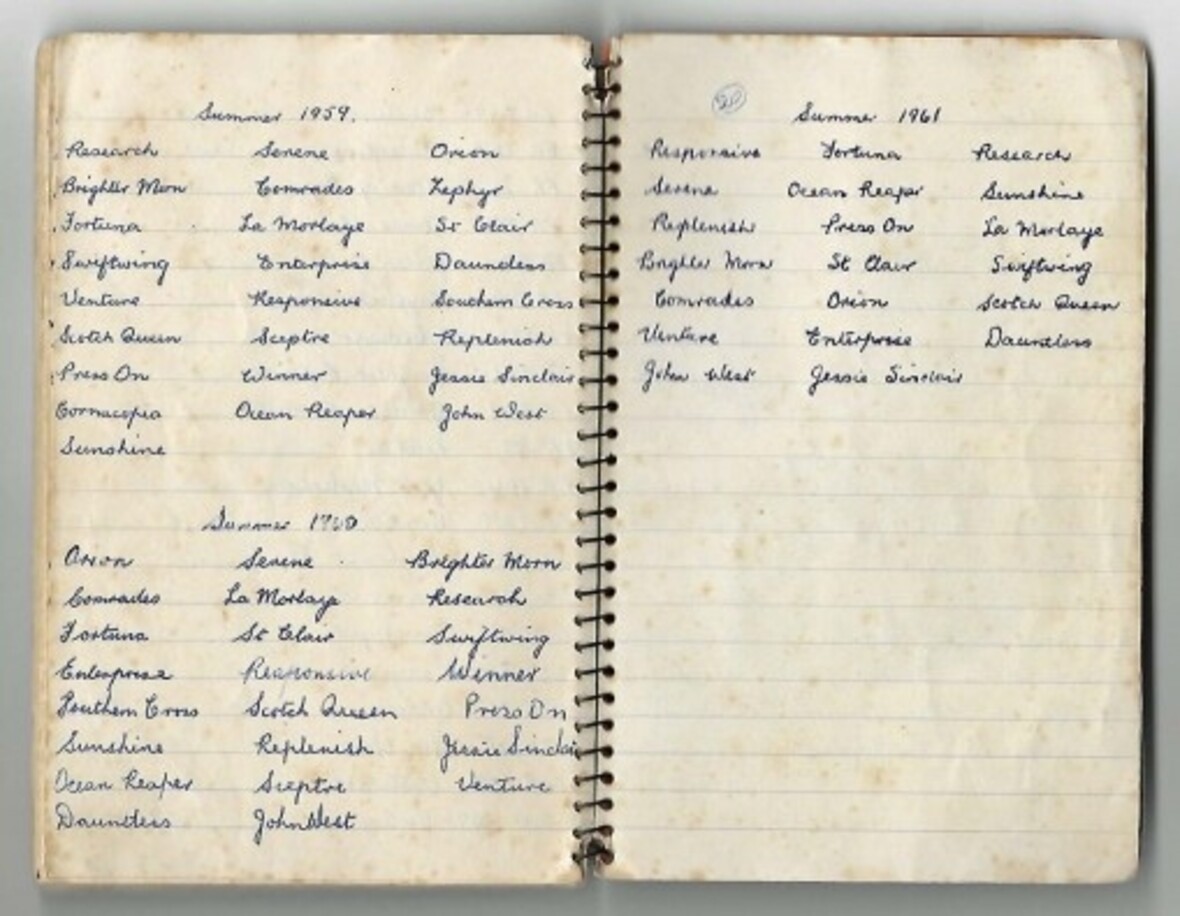 Summer 1959.
Research Serene Orion
Brighter Morn Comrades Zephyr
Fortuna La Morlaye St Clair
Swiftwing Enterprise Dauntless
Venture Responsive Southern Cross
Scotch Queen Sceptre Replenish
Press On Winner Jessie Sinclair
Cornacopia Ocean Reaper John West
Sunshine
Summer 1960
Orion Serene Brighter Morn
Comrades La Morlaye Research
Fortuna St Clair Swiftwing
Enterprise Responsive Winner
Southern Cross Scotch Queen Press On
Sunshine Replenish Jessie Sinclair
Ocean Reaper Sceptre Venture
Dauntless John West
Summer 1961
Responsive Fortuna Research
Serene Ocean Reaper Sunshine
Replenish Press On La Morlaye
Brighter Morn St Clair Swiftwing
Comrades Orion Scotch Queen
Venture Enterprise Dauntless
John West Jessie Sinclair